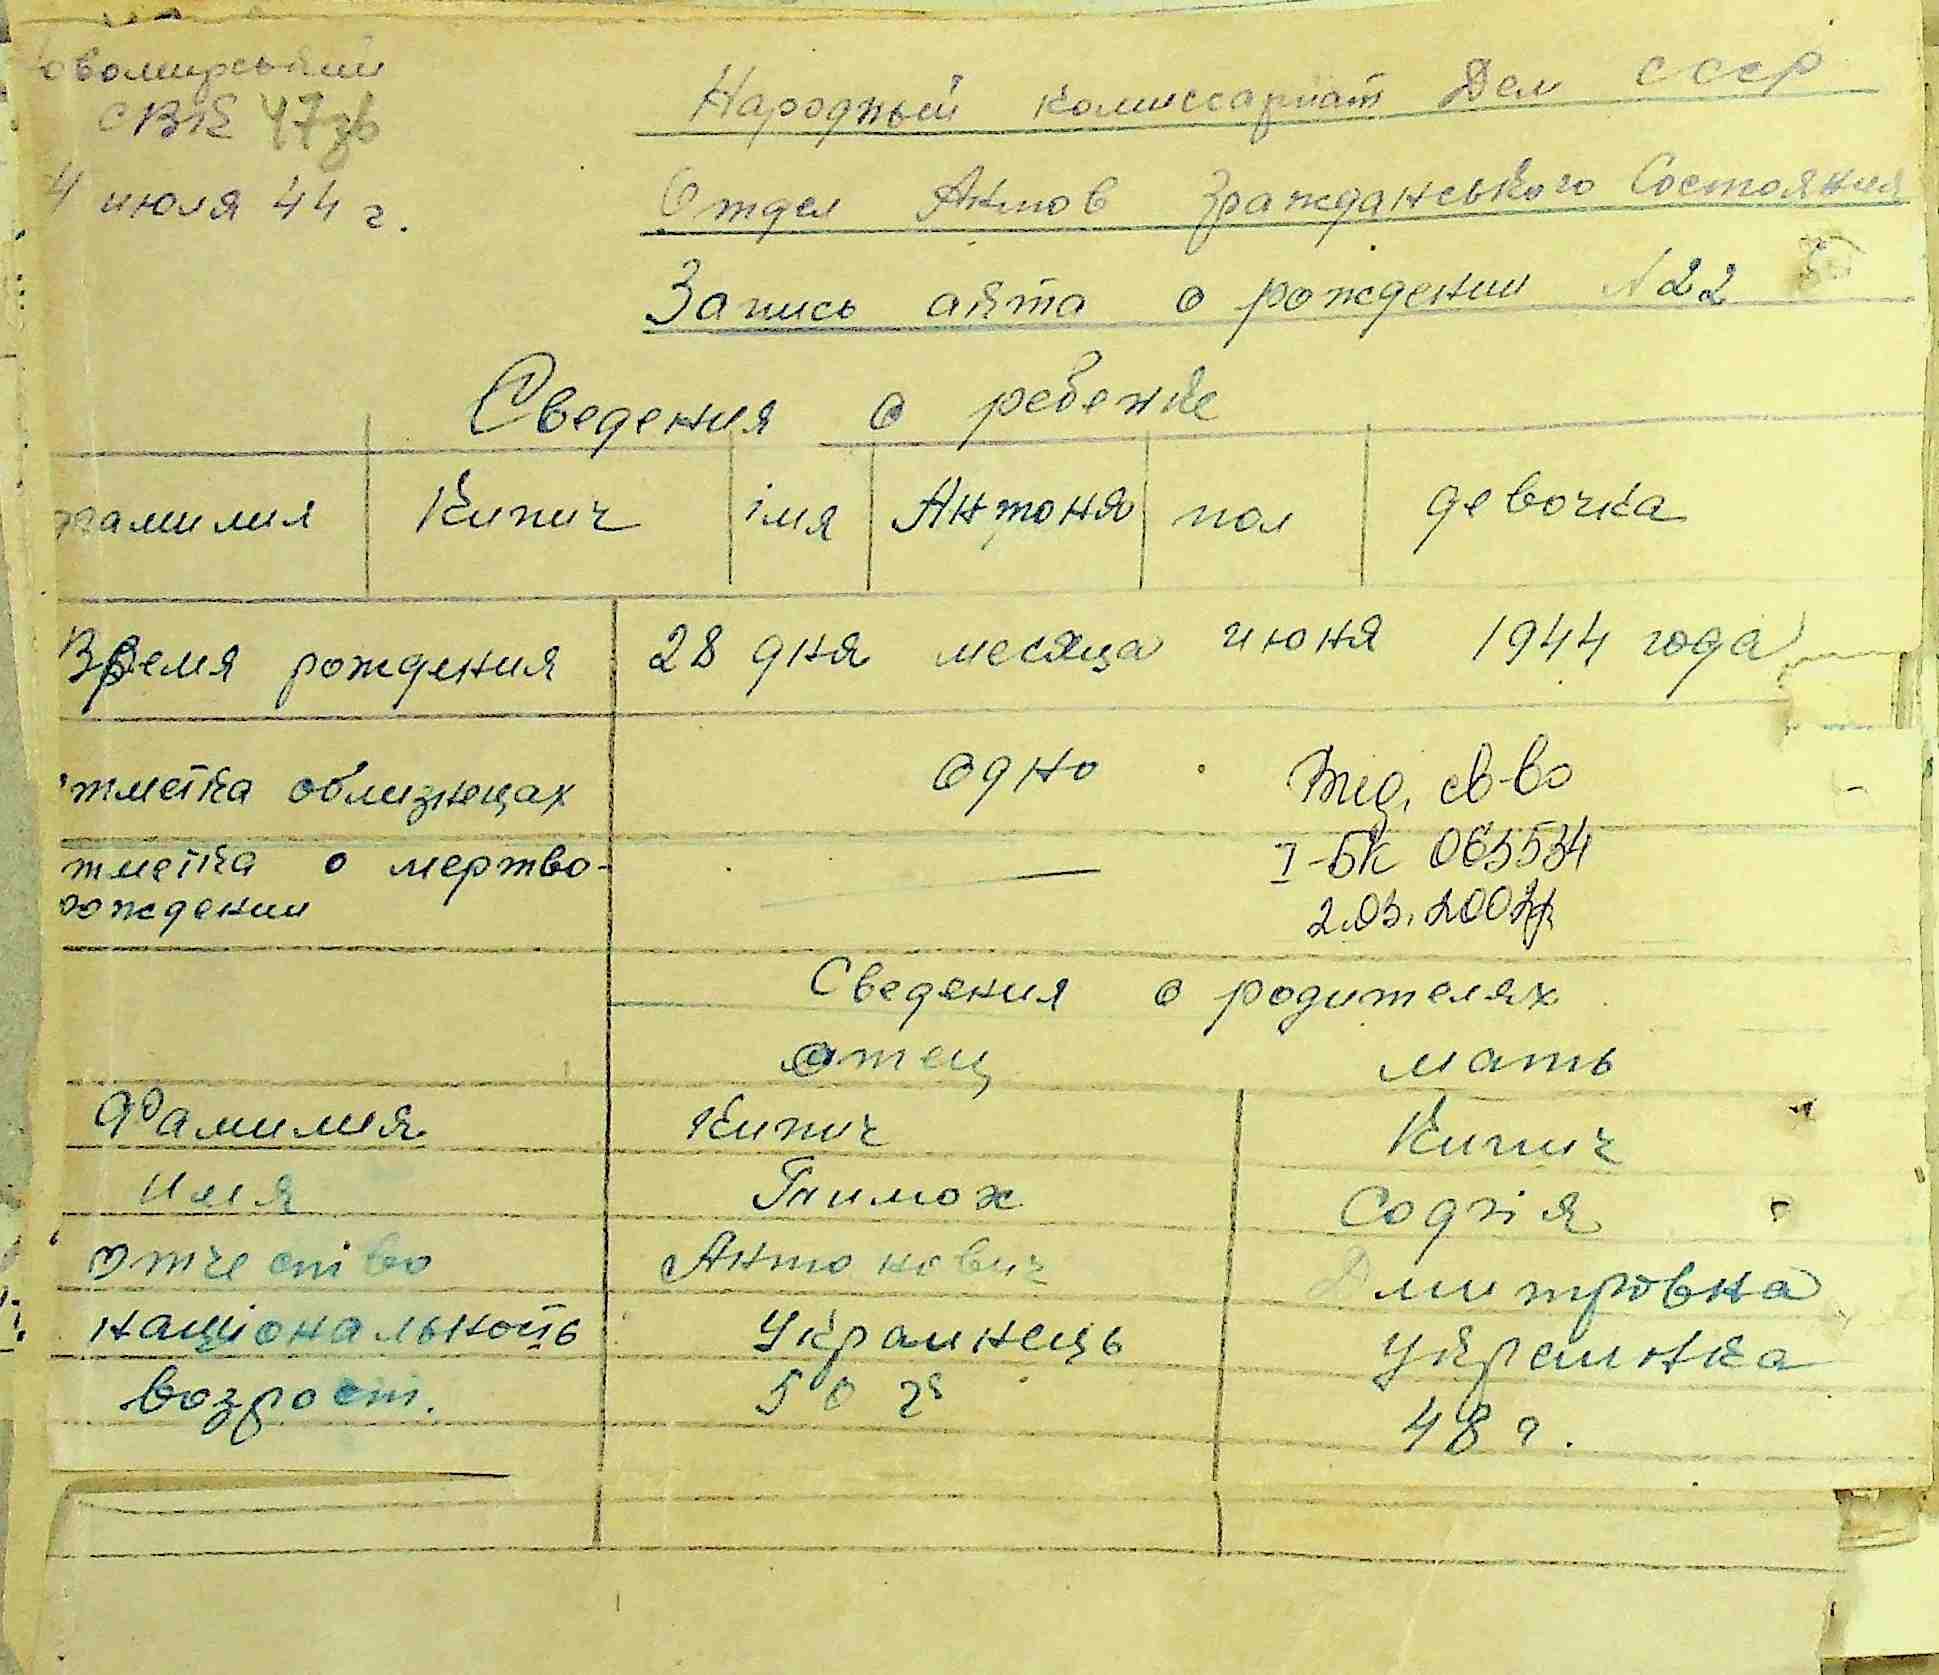 овомирський
47зв
4 июля 44 г.
Народный комиссариат Дел СССР
Отдел Актов Гражданського Состояния
Запись акта о рождении N 22
Сведения о ребенке
фамилия Кипич імя Антоня пол девочка
Время рождения 28 дня месяца июня 1944 года
тметка облизнецах одно
тметка о мертво-
рождении —
Выд. св-во
I-БК 063534
Сведения о родителях
отец мать
Фамилия Кипич Кипич
Имя Тимох Софія
Отчество Антонович Дмитровна
національность Украинець Украинка
возраст. 50 г 48 г.